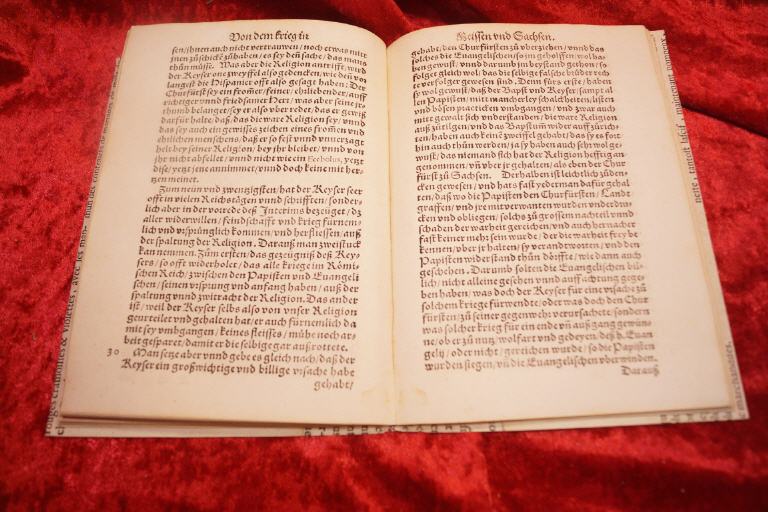 Von dem krieg in
sen/ihnen auch nicht vertrauwen/noch etwas mitt
jnen zů schicken zů haben/es sey deñ sache/das mans
thůn můsse. Was aber die Religion antrifft/wird
der Keyser one zweyffel also gedencken/wie deñ vor
langest die Hispanier offt also gesagt haben: Der
Churfürst sey ein fromer/feiner/ehrliebender/auff
richtiger vnnd friedsamer Herr/was aber seine Irr
thumb belanget/sey er also vber redet/das er gewiß
darfür halte/daß/das die ware Religion sey/vnnd
das sey auch ein gewisses zeichen eines fromen vnd
ehrlichen menschens/daß er so fest vnd vnuerzagt
helt bey seiner Religion/bey jhr bleibet/vnnd von
jhr nicht abfellet/vnnd nicht wie ein Ecebolus/yetzt
diese/yetzt jene annimmet/vnnd doch keine mit her-
tzen meinet.
Zum neun vnd zwentzigsten/hat der Keyser seer
offt in vielen Reichstägen vnnd schrifften/sonder-
lich aber in der vorrede deß Interims bezeuget/dz
aller widerwillen/feindschafft vnd krieg fürnem-
lich vnd vrsprünglich kommen/vnd herfliessen/auß
der spaltung der Religion. Darauß man zwei stuck
kan nemmen. Zům ersten/das gezeugniß deß Key-
sers/so offt widerholet/das alle kriege im Römi-
schen Reich/zwischen den Papisten vnd Euangeli
schen/seinen vrspung vnd anfang haben/auß der
spaltung vnnd zwitracht der Religion. Das ander
ist/weil der Keyser selbs also von vnser Religion
geurteilet vnd gehalten hat/er auch fürnemlich da
mit sey vmbgangen/keines fleisses/mühe noch ar-
beit gesparet/damit er die selbige gar außrottete.
30 Man setze aber vnnd gebe es gleich nach/daß der
Keyser ein großwichtige vnd billige vrsache habe
gehabt/
Meissen vnd Sachsen.
gehabt/den Churfürsten zů vberziehen/vnnd das
solches die Euangelischen/so jm geholffen/wol ha-
ben gewust/vnnd darumb jm beystand gethon/so
folget gleich wol/das die selbige falsche brüder rech
te verfolger gewesen sind. Dem fürs erste/haben
sy wol gewust/daß der Bapst vnd Keyser/sampt al
len Papisten/mit mancherley schalckheiten/listen
vnd bösen practicken vmbgangen/vnd zwar auch
mitt gewalt sich vnderstanden/die ware Religion
auß zůtilgen/vnd das Bapstum wider auff zůrich-
ten/haben auch keinen zweiffel gehabt/das sy es fort
hin auch thůn werden/ja sy haben auch sehr wol ge-
wust/das niemand sich hat der Religion hefftig an-
genommen/vñ vber jr gehalten/als eben der Chur
fürst zů Sachsen. Derhalben ist leichtlich zů den-
cken gewesen/vnd hats fast yederman dafür gehal
ten/daß wo die Papisten den Churfürsten/Land-
graffen/vnd jre mitverwanten wurden vnderdru-
cken vnd obliegen/solchs zů grossem nachteil vnnd
schaden der warheit gereichen/vnd auch hernacher
fast keiner mehr sein wurde/der die warheit frey be
kennen/vber jr halten/sy verantworten/vnd den
Papisten widerstand thůn dörffte/wie dann auch
geschehen. Darumb solten die Euangelischen bil-
lich/nicht alleine gesehen vnnd auff achtung gege-
ben haben/was doch der Keyser für eine vrsache zů
solchem kriege fürwendte/oder was doch den Chur
fürsten/zů seiner gegenwehr verursachete/sondern
was solcher krieg für ein ende vñ außgang gewün-
ne/ob er zů nutz/wolfart vnd gedeyen/deß h. Euan
gelij/oder nicht/gereichen wurde/so die Papisten
wurden siegen/vñ die Euangelischen vberwinden.
Darauß